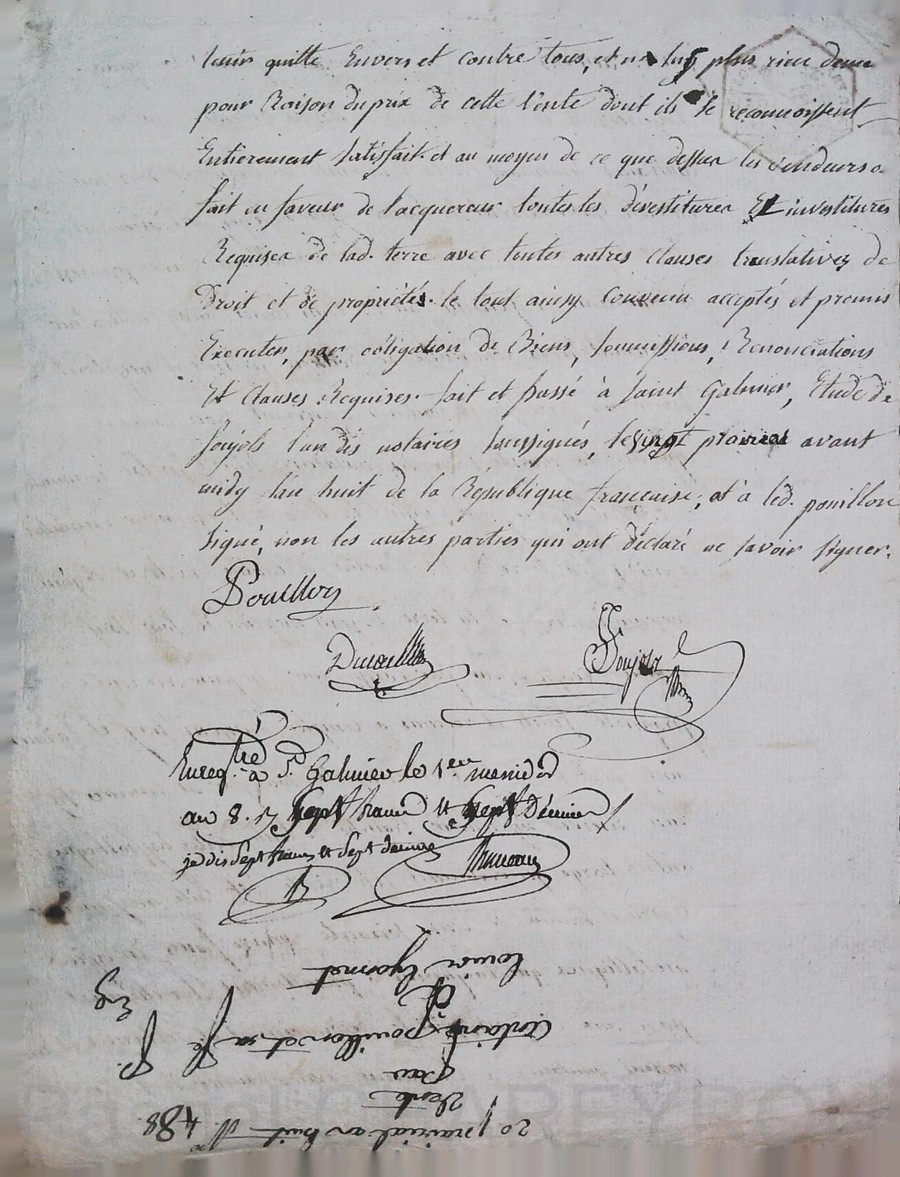 tenir quitte Envers et contre tous, et ne luy plus rien deu
pour Raison du prix de cette vente dont ils se reconnoissent
Entierement satisfait. et au moyen de ce que dessus les vendeurs
fait en faveur de l'acquereur toutes les dévestitures Et investitures
Requises de lad. terre avec toutes autres clauses translatives de
Droit et de propriétés. le tout ainsy convenu acceptés et promis
Executer, par obligation de Biens, soumissions, Renonciations
Et clauses Requises. fait et passé à Saint Galmier, Etude de
Soujols l'un des notaires soussignés, le vingt prairial avant
midy l'an huit de la République française, et à led. pouillon
signé, non les autres parties qui ont déclaré ne savoir signer.
Pouillon
Soujols
Enregtré à St. Galmier le 1er messidor
an 8. R sept francs et sept Décimes
je dis sept francs et sept decimes
20 prairial an huit No 488
Vente
Par
antoine pouillon et sa fe
A
louis